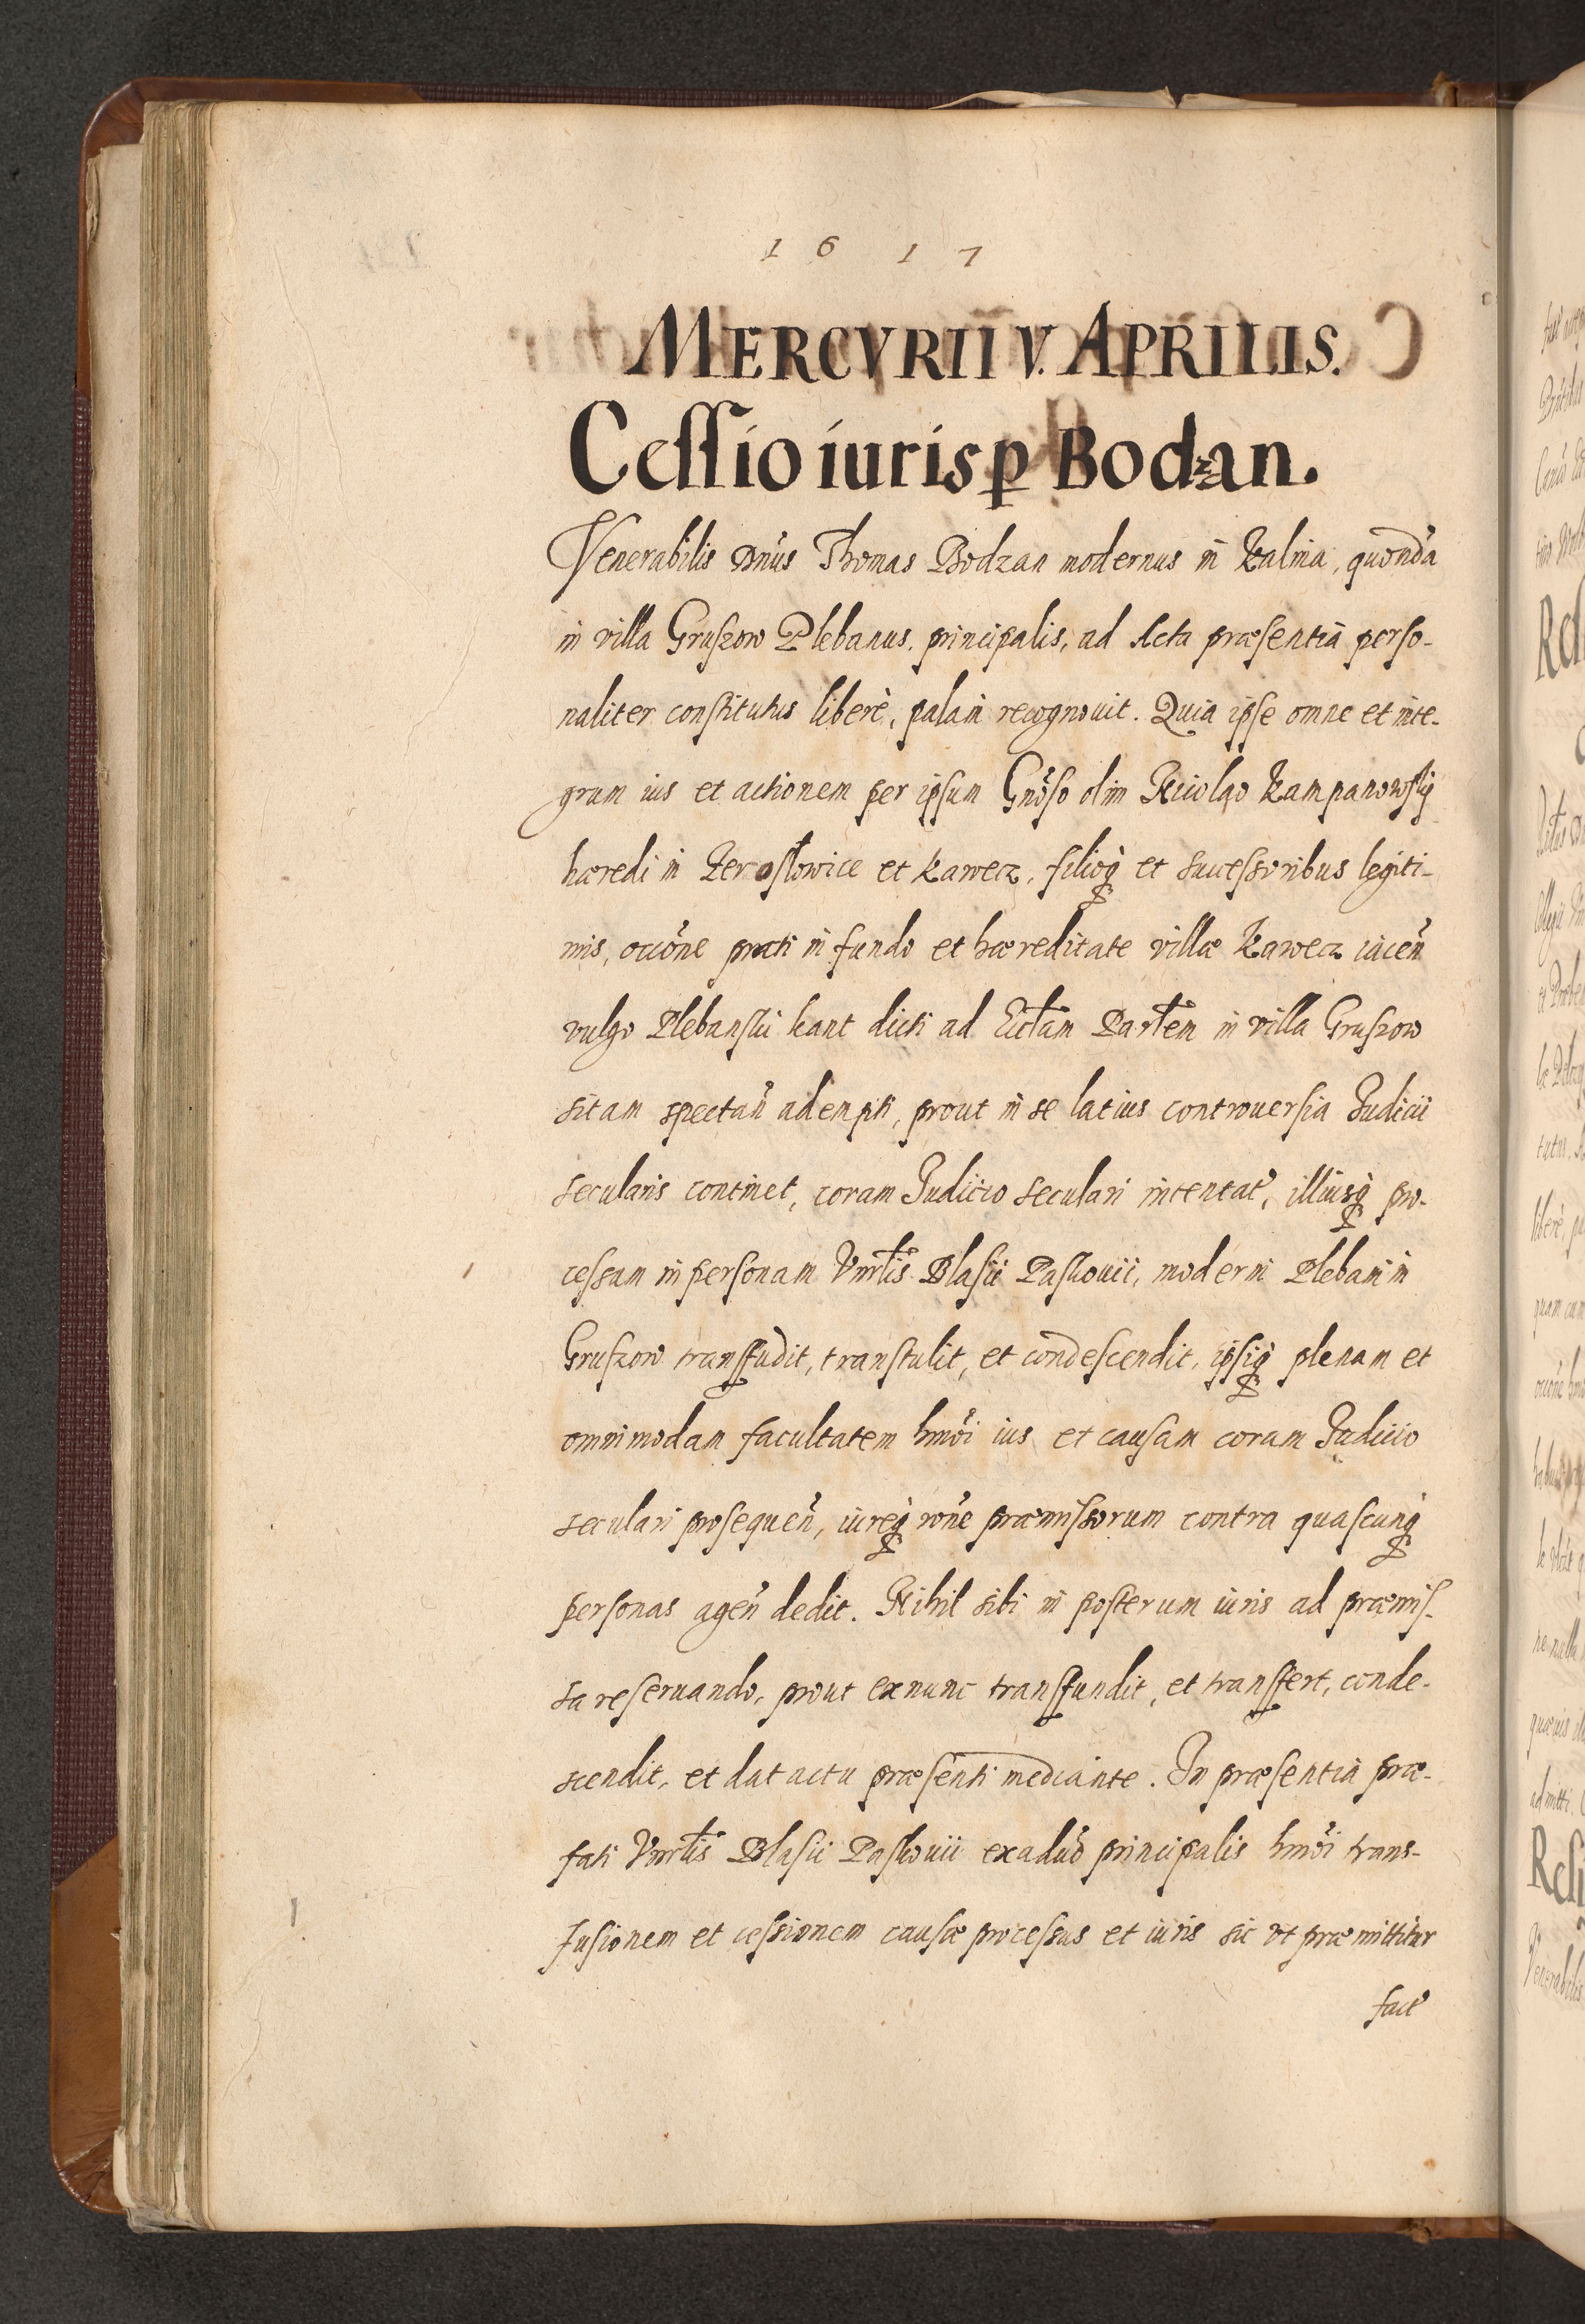 1 6 1 7
MERCVRII V. APRILIS.
Cessio iuris ꝑ Bodzan.
Venerabilis Dn̄us Thomas Bodzan modernus in Kalina, quondā
in villa Gruszow Plebanus, principalis, ad Acta præsentia perso-
naliter constitutus liberè, palam recognouit. Quia ipse omne et inte-
grum ius et actionem per ipsum Gnōso olim Nicolao Kampanowskj
hæredi in Zeroslowice et Kawecz, filiosq́ et successoribus legiti-
mis, occōne prati in fundo et hæreditate villæ Kawecz iacen̄
vulgo Plebanski kant dicti ad Ecctam Partem in villa Gruszow
sitam spectan̄ adempti, prout in se latius controuersia Iudicii
secularis continet, coram Iudicio seculari intentat', illiusq́ pro-
cessum in personam Vnrlis Blasii Paskouii, moderni Plebani in
Gruszow transfudit, transtulit, et condescendit, ipsiq́ plenam et
omnimodam facultatem hmōi ius et causam coram Iudicio
seculari prosequen̄, iureq́ rōne præmissorum contra quascunq́
personas agen̄ dedit. Nihil sibi in posterum iuris ad præmis-
sa reseruando, prout ex nunc transfundit, et transfert, conde-
scendit, et dat actu præsenti mediante. In præsentia præ-
fati Vnrlis Blasii Paskouii ex aduō principalis hmōi trans-
fusionem et cessionem causæ processus et iuris sic vt præmittitur
fact'